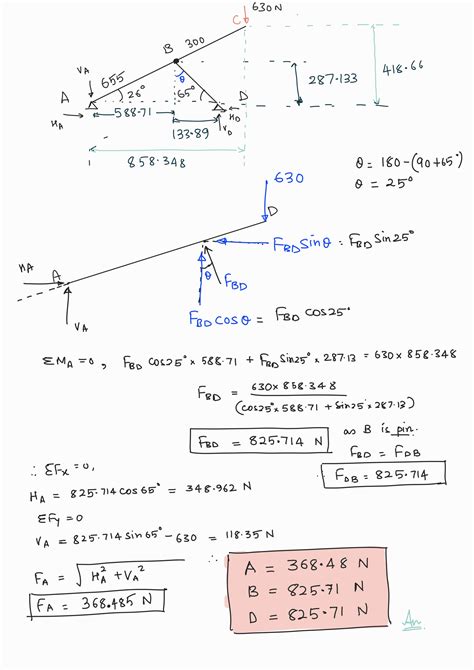 630N
C
300
B
VA
θ
655
287.133
418.66
A
26°
65°
D
HA
588.71
HD
VD
133.89
858.348
θ = 180-(90+65°)
θ = 25°
630
D
FBD Sinθ = FBD Sin25°
HA
A
θ
FBD
VA
FBD COSθ = FBD COS25°
ΣMA =0, FBD COS25° × 588.71 + FBD Sin25° × 287.13 = 630 × 858.348
FBD = 630 × 858.348
(cos25° × 588.71 + Sin25° × 287.13)
FBD = 825.714 N
as B is pin.
FBD = FDB
FDB = 825.714
∴ ΣFx =0,
HA = 825.714 cos 65° = 348.962 N
ΣFy =0
VA = 825.714 sin 65° - 630 = 118.35 N
FA = √HA² + VA²
FA = 368.485 N
∴
A = 368.48 N
B = 825.71 N
D = 825.71 N
An.